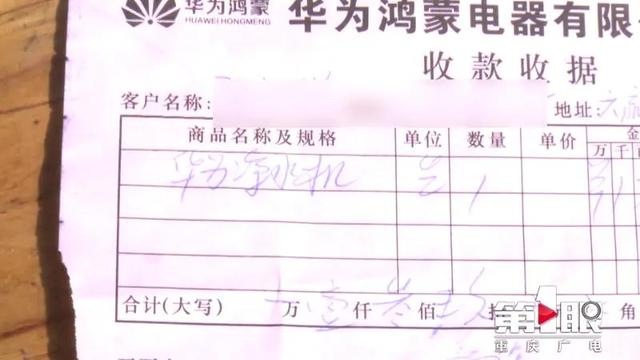 华为鸿蒙 华为鸿蒙电器有限
HUAWEI HONGMENG
收款收据
客户名称: 地址:
商品名称及规格 单位 数量 单价 金
万 千
华为净水机 1
合计(大写) 万 壹 仟 叁 佰 角
第1眼
重庆广电